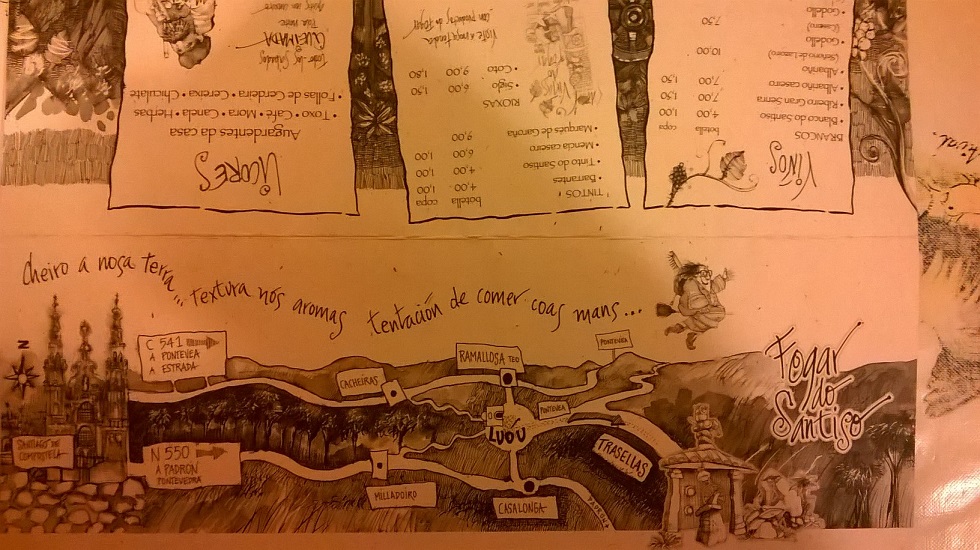 cheiro a nosa terra...
textura nós aromas
tentación de comer coas mans...
Fogar
do
Santiso
C 541
A PONTEVEA
A ESTRADA
CACHEIRAS
RAMALLOSA TEO
PONTEVEA
PONTEVEA
LUOU
TRASELLAS
SANTIAGO DE
COMPOSTELA
N 550
A PADRÓN
PONTEVEDRA
MILLADOIRO
CASALONGA
N
VIÑOS
BRANCOS
botella copa
• Blanco do Santiso 4,00 1,00
• Ribeiro Gran Serra 7,00 1,50
• Albariño caseiro 7,00 1,50
• Albariño
(Señorío de Lastero) 10,00
• Godello
(Caseiro) 7,50
• Godello
TINTOS
botella copa
• Barrantes 4,00 1,00
• Tinto do Santiso 4,00 1,00
• Mencía caseiro 6,00 1,00
• Marqués de Garoña 9,00
RIOXAS
• Siglo 6,00 1,50
• Coto 9,00 1,80
LICORES
Augardentes da casa
• Toxo • Café • Mora • Canela • Herbas
• Follas de Cerdeira • Cereixa • Chiculate
QUEIMADA